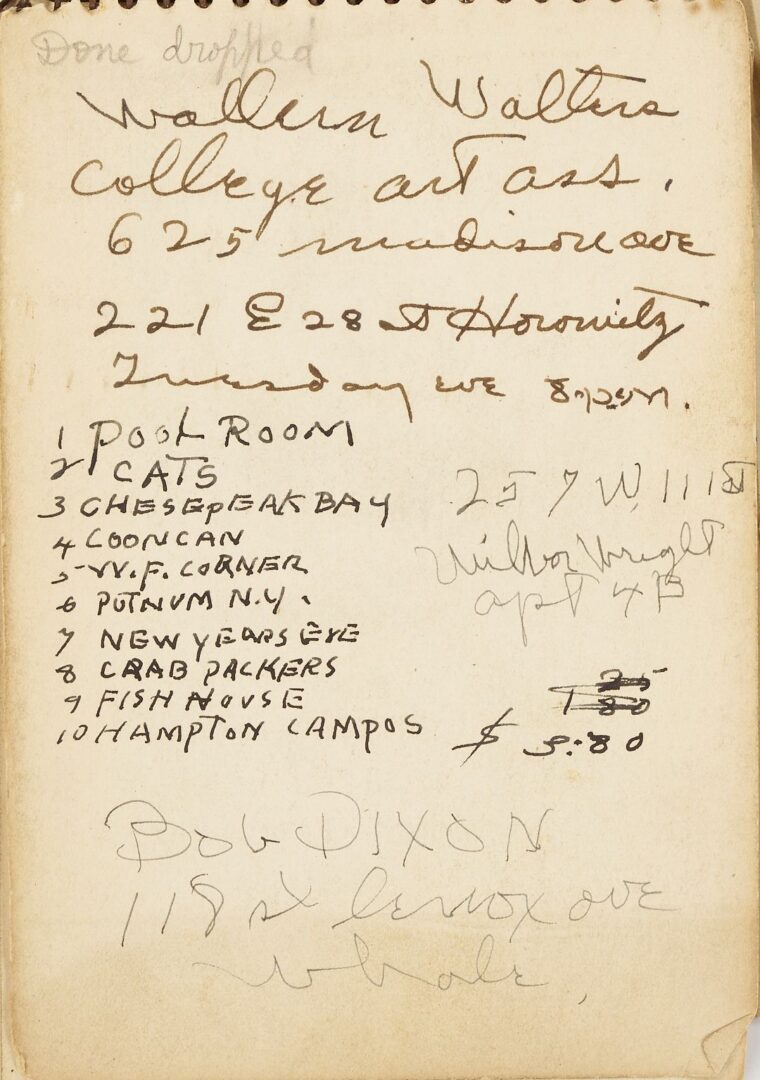 Done dropped
Wallern Walters
college art ass.
625 madison ave
221 E 28 St Horowitz
Tuesday eve 8 p.m.
1 POOL ROOM
2 CATS
3 CHESEPEAK BAY
4 COONCAN
5 W.F. CORNER
6 PUTNUM N.Y.
7 NEW YEARS EVE
8 CRAB PACKERS
9 FISH HOUSE
10 HAMPTON CAMPOS
257 W 111 ST
Wilbor Wright
apt 4B
25
1 80
$ 3.80
Bob DIXON
118 st lenox ove
whole,